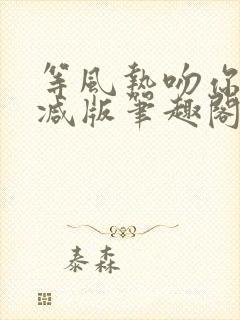 等風熱吻你
減版筆趣閣
泰森